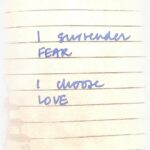 I surrender
FEAR
I choose
LOVE